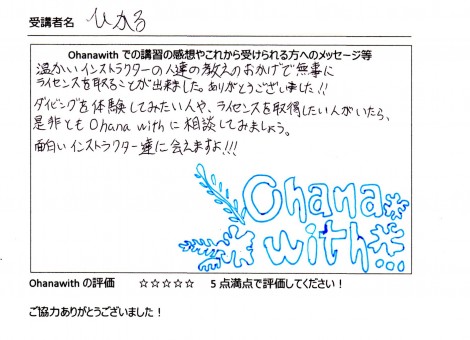 受講者名 ひかる
Ohanawith での講習の感想やこれから受けられる方へのメッセージ等
温かいインストラクターの人達の教えのおかげで無事に
ライセンスを取ることが出来ました。ありがとうございました!!
ダイビングを体験してみたい人や、ライセンスを取得したい人がいたら、
是非とも Ohana with に相談してみましょう。
面白いインストラクター達に会えますよ!!!
Ohana
with...
Ohanawith の評価 ☆☆☆☆☆ 5 点満点で評価してください！
ご協力ありがとうございました！